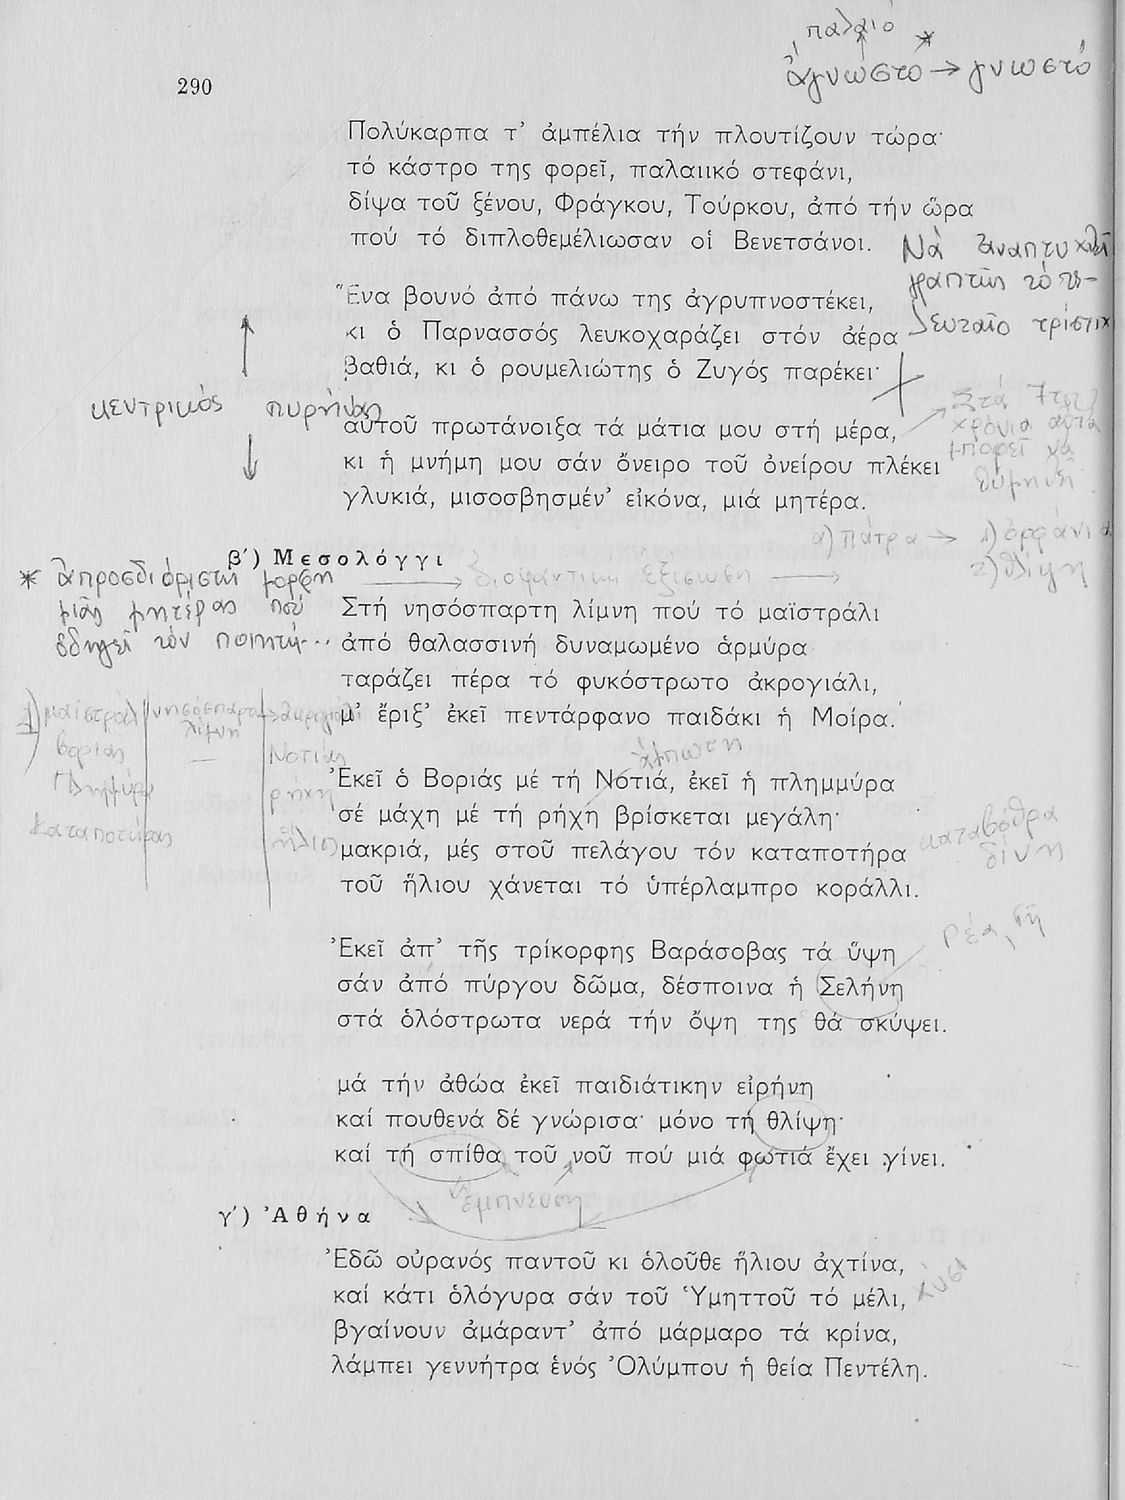 παλαιό
ἀγνώστο → γνωστό
290
Πολύκαρπα τ' ἀμπέλια τήν πλουτίζουν τώρα·
τό κάστρο της φορεῖ, παλαιικό στεφάνι,
δίψα τοῦ ξένου, Φράγκου, Τούρκου, ἀπό τήν ὥρα
πού τό διπλοθεμέλιωσαν οἱ Βενετσάνοι.
Νά ἀναπτυχθεῖ
γραπτῶς τό τε-
λευταῖο τρίστιχ
Ἕνα βουνό ἀπό πάνω της ἀγρυπνοστέκει,
κι ὁ Παρνασσός λευκοχαράζει στόν ἀέρα
βαθιά, κι ὁ ρουμελιώτης ὁ Ζυγός παρέκει·
κεντρικός πυρήνας
Στά 7
χρόνια αὐτά
μπορεῖ νά
θυμηθεῖ
αὐτοῦ πρωτάνοιξα τά μάτια μου στή μέρα,
κι ἡ μνήμη μου σάν ὄνειρο τοῦ ὀνείρου πλέκει
γλυκιά, μισοσβησμέν' εἰκόνα, μιά μητέρα.
α) πάτρα → 1) ὀρφάνια
2) θλίψη
β΄) Μεσολόγγι
* ἀπροσδιόριστη μορφή → διοφαντική ἐξίσωση →
μιᾶς μητέρας πού
ὁδηγεῖ τόν ποιητή...
Στή νησόσπαρτη λίμνη πού τό μαϊστράλι
ἀπό θαλασσινή δυναμωμένο ἁρμύρα
ταράζει πέρα τό φυκόστρωτο ἀκρογιάλι,
μ' ἔριξ' ἐκεῖ πεντάρφανο παιδάκι ἡ Μοίρα.
1) μαϊστράλι νησόσπαρτη → ἀκρογιάλι
λίμνη
βοριάς — Νοτιάς
Πλημμύρα ρήχη
Καταποτήρας ἥλιος
ἄμπωτη
Ἐκεῖ ὁ Βοριάς μέ τή Νοτιά, ἐκεῖ ἡ πλημμύρα
σέ μάχη μέ τή ρήχη βρίσκεται μεγάλη·
μακριά, μές στοῦ πελάγου τόν καταποτήρα
τοῦ ἥλιου χάνεται τό ὑπέρλαμπρο κοράλλι.
καταβόθρα
δίνη
Ἐκεῖ ἀπ' τῆς τρίκορφης Βαράσοβας τά ὕψη
σάν ἀπό πύργου δῶμα, δέσποινα ἡ Σελήνη
στά ὁλόστρωτα νερά τήν ὄψη της θά σκύψει.
Ρέα, γῆ
μά τήν ἀθώα ἐκεῖ παιδιάτικην εἰρήνη
καί πουθενά δέ γνώρισα· μόνο τή θλίψη·
καί τή σπίθα τοῦ νοῦ πού μιά φωτιά ἔχει γίνει.
ἔμπνευση
γ΄) Ἀθήνα
Ἐδῶ οὐρανός παντοῦ κι ὁλοῦθε ἥλιου ἀχτίνα,
καί κάτι ὁλόγυρα σάν τοῦ Ὑμηττοῦ τό μέλι,
βγαίνουν ἀμάραντ' ἀπό μάρμαρο τά κρίνα,
λάμπει γεννήτρα ἑνός Ὀλύμπου ἡ θεία Πεντέλη.